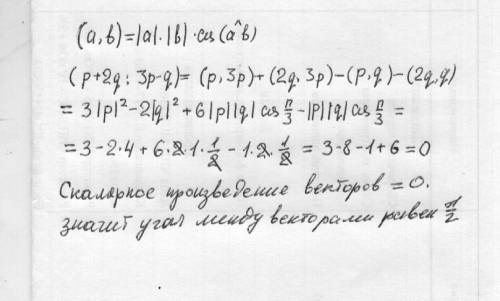 (a,b)=|a|·|b|·cos(a^b)
(p+2q; 3p-q)=(p,3p)+(2q,3p)-(p,q)-(2q,q)
=3|p|²-2|q|²+6|p||q|cos π/3-|p||q|cos π/3=
=3-2·4+6·2·1·1/2-1·2·1/2=3-8-1+6=0
Скалярное произведение векторов=0.
значит угол между векторами равен π/2